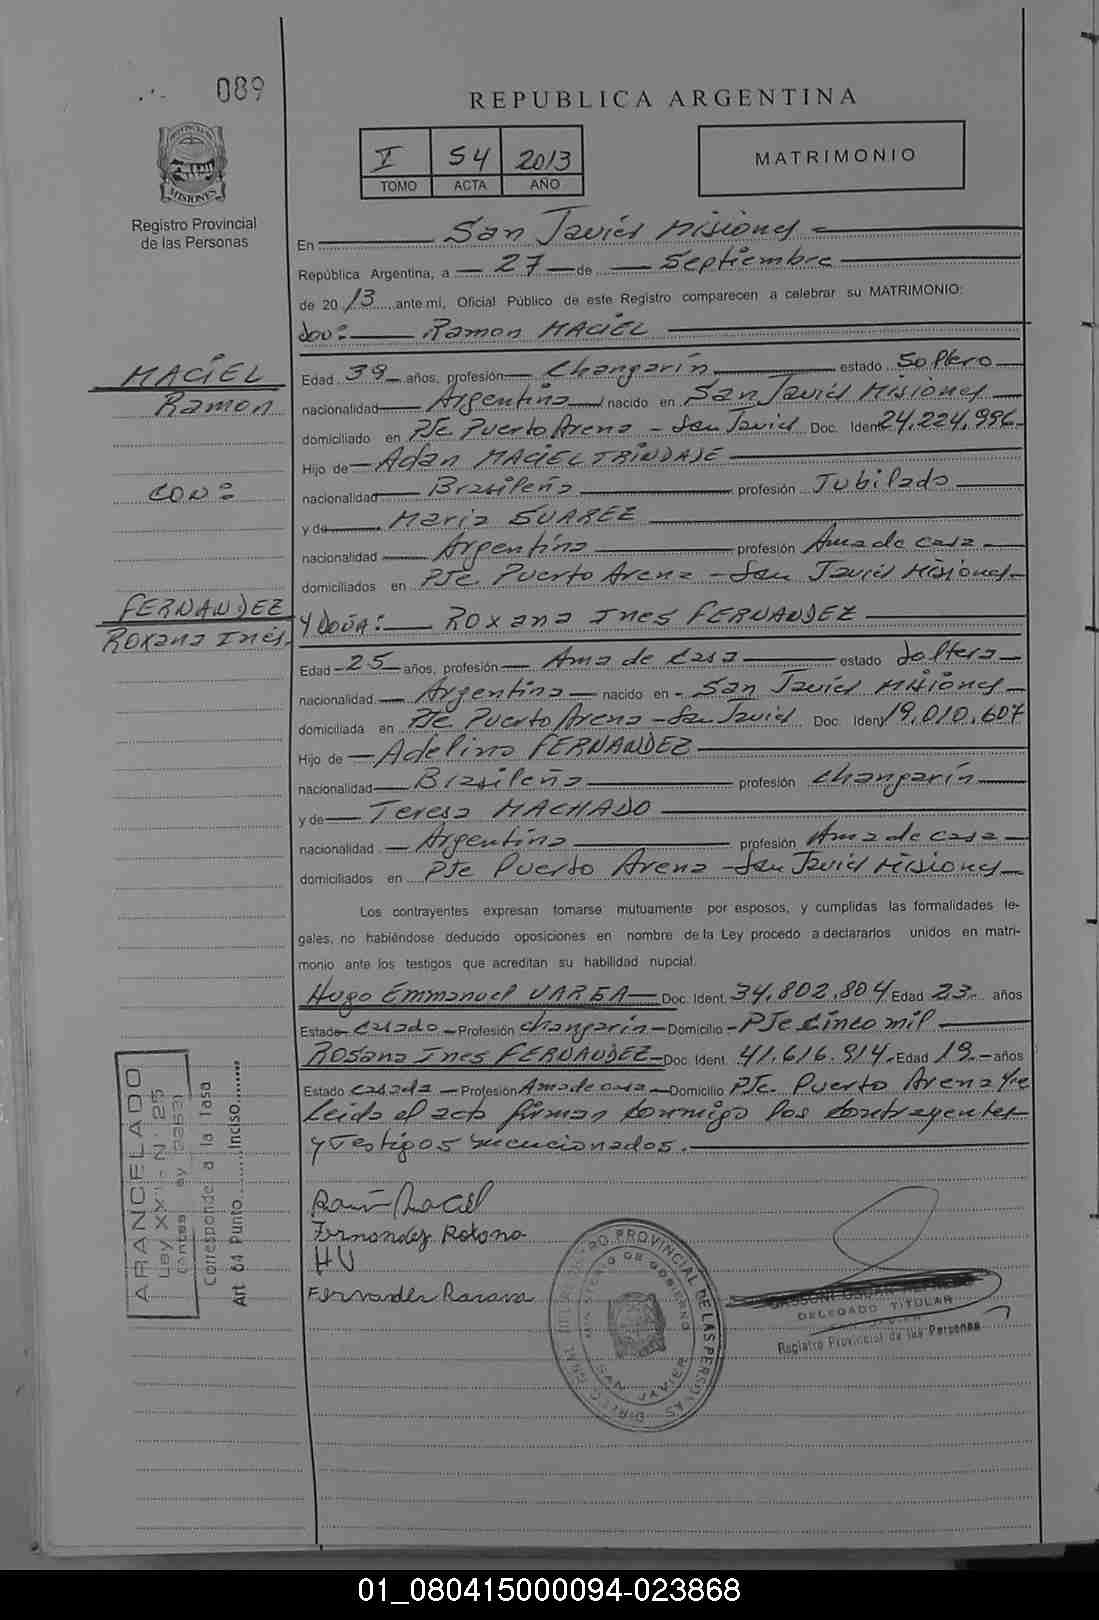 089
REPUBLICA ARGENTINA
I 54 2013
TOMO ACTA AÑO
MATRIMONIO
PROVINCIA DE
MISIONES
Registro Provincial
de las Personas
En San Javier Misiones
República Argentina, a 27 de Septiembre
de 2013 ante mí, Oficial Público de este Registro comparecen a celebrar su MATRIMONIO:
Don: Ramon MACIEL
MACIEL
Ramon
CON:
FERNANDEZ
Roxana Inés.
Edad 38 años, profesión Changarín estado Soltero
nacionalidad Argentina nacido en San Javier Misiones
domiciliado en PJe Puerto Arena - San Javier Doc. Ident 24.224.996
Hijo de Adan MACIEL TRINDADE
nacionalidad Brasileña profesión Jubilado
y de Maria SUAREZ
nacionalidad Argentina profesión Ama de casa
domiciliados en PJe. Puerto Arena - San Javier Misiones
Y DOÑA: Roxana Ines FERNANDEZ
Edad 25 años, profesión Ama de Casa estado Soltera
nacionalidad Argentina nacido en San Javier Misiones
domiciliada en PJe Puerto Arena - San Javier Doc. Ident 19.010.607
Hijo de Adelino FERNANDEZ
nacionalidad Brasileña profesión Changarín
y de Teresa MACHADO
nacionalidad Argentina profesión Ama de casa
domiciliados en PJe Puerto Arena - San Javier Misiones
Los contrayentes expresan tomarse mutuamente por esposos, y cumplidas las formalidades le-
gales, no habiéndose deducido oposiciones en nombre de la Ley procedo a declararlos unidos en matri-
monio ante los testigos que acreditan su habilidad nupcial.
Hugo Emmanuel VARGA Doc. Ident. 34.802.804 Edad 23 años
Estado Casado Profesión Changarín Domicilio PJe Cinco mil
Rosana Ines FERNANDEZ Doc. Ident. 41.616.914 Edad 19 años
Estado Casada Profesión Ama de casa Domicilio PJe. Puerto Arena
Leida el acta firman conmigo los contrayentes
y Testigos mencionados.
ARANCELADO
Ley XXII - N° 25
Corresponde a la Tasa
Art 64 Punto.......Inciso.......
Ramón Maciel
Fernandez Roxana
HV
Fernandez Rosana
REGISTRO PROVINCIAL DE LAS PERSONAS
MINISTERIO DE GOBIERNO
SAN JAVIER
DELEGADO TITULAR
Registro Provincial de las Personas
01_080415000094-023868